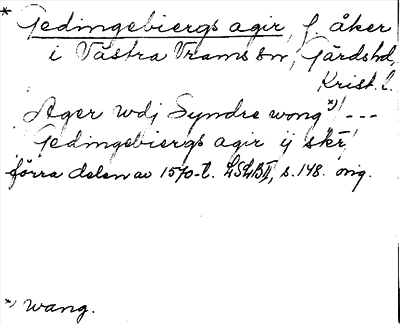 * Gedingebiergs agir, f åker
i Västra Vrams sn, Gärds hd,
Krist. l.
Ager wdj Syndre wong *) ---
Gedingebiergs agir ij skr.
förra delen av 1570-t. LSLB II, s. 148. orig.
*) wang.